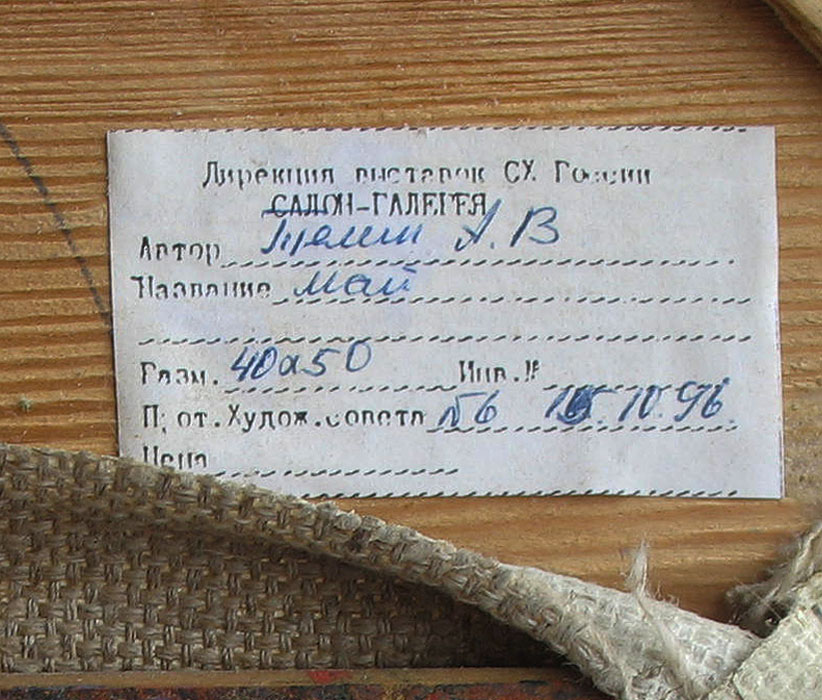 Дирекция выставок СХ России
САЛОН-ГАЛЕРЕЯ
Автор А. В
Название май
Разм. 40х50 Инв.№
Прот.Худож.совета №6 15.10.96.
Цена